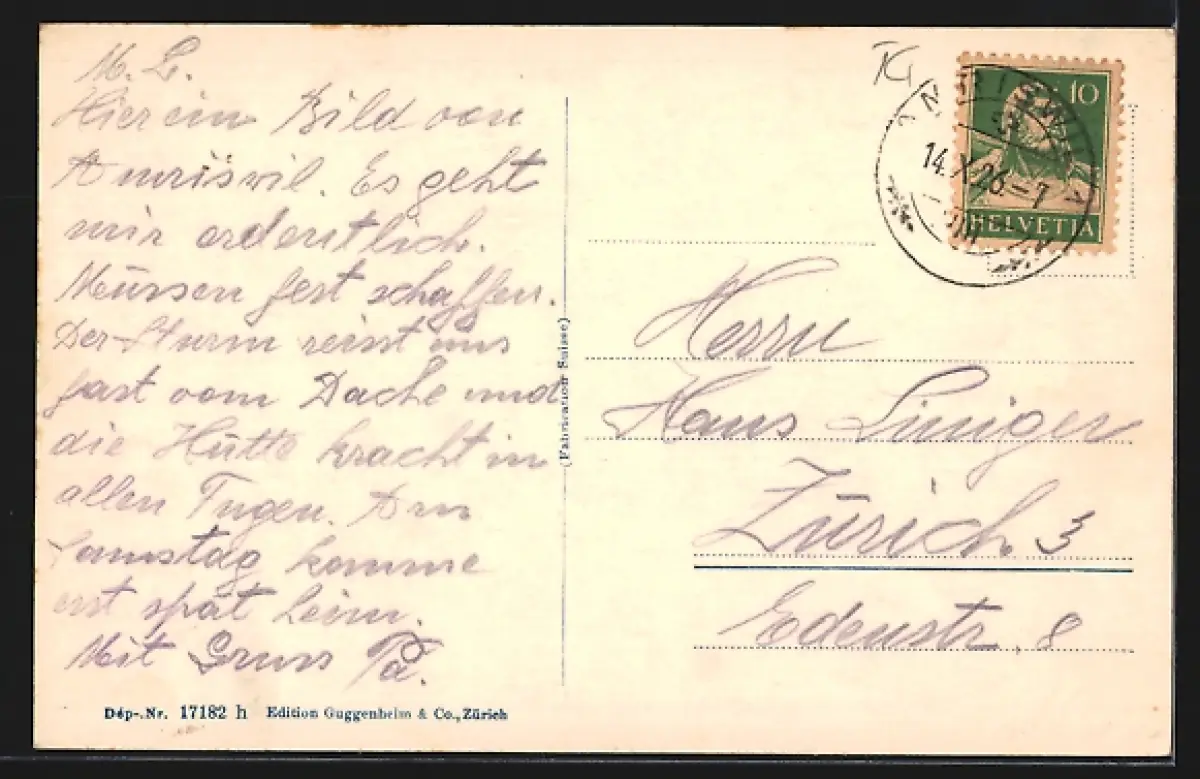 M. L.
Hier ein Bild von
Amriswil. Es geht
mir ordentlich.
Müssen fest schaffen.
Der Sturm reisst uns
fast vom Dache und
die Hütte kracht in
allen Fugen. Am
Samstag komme
erst spät heim.
Mit Gruss Pa.
Dép-.Nr. 17182 h Edition Guggenheim & Co., Zürich
(Fabrication Suisse)
10
HELVETIA
14.X.26-7
Herrn
Hans Liniger
Zürich 3
Edenstr. 8